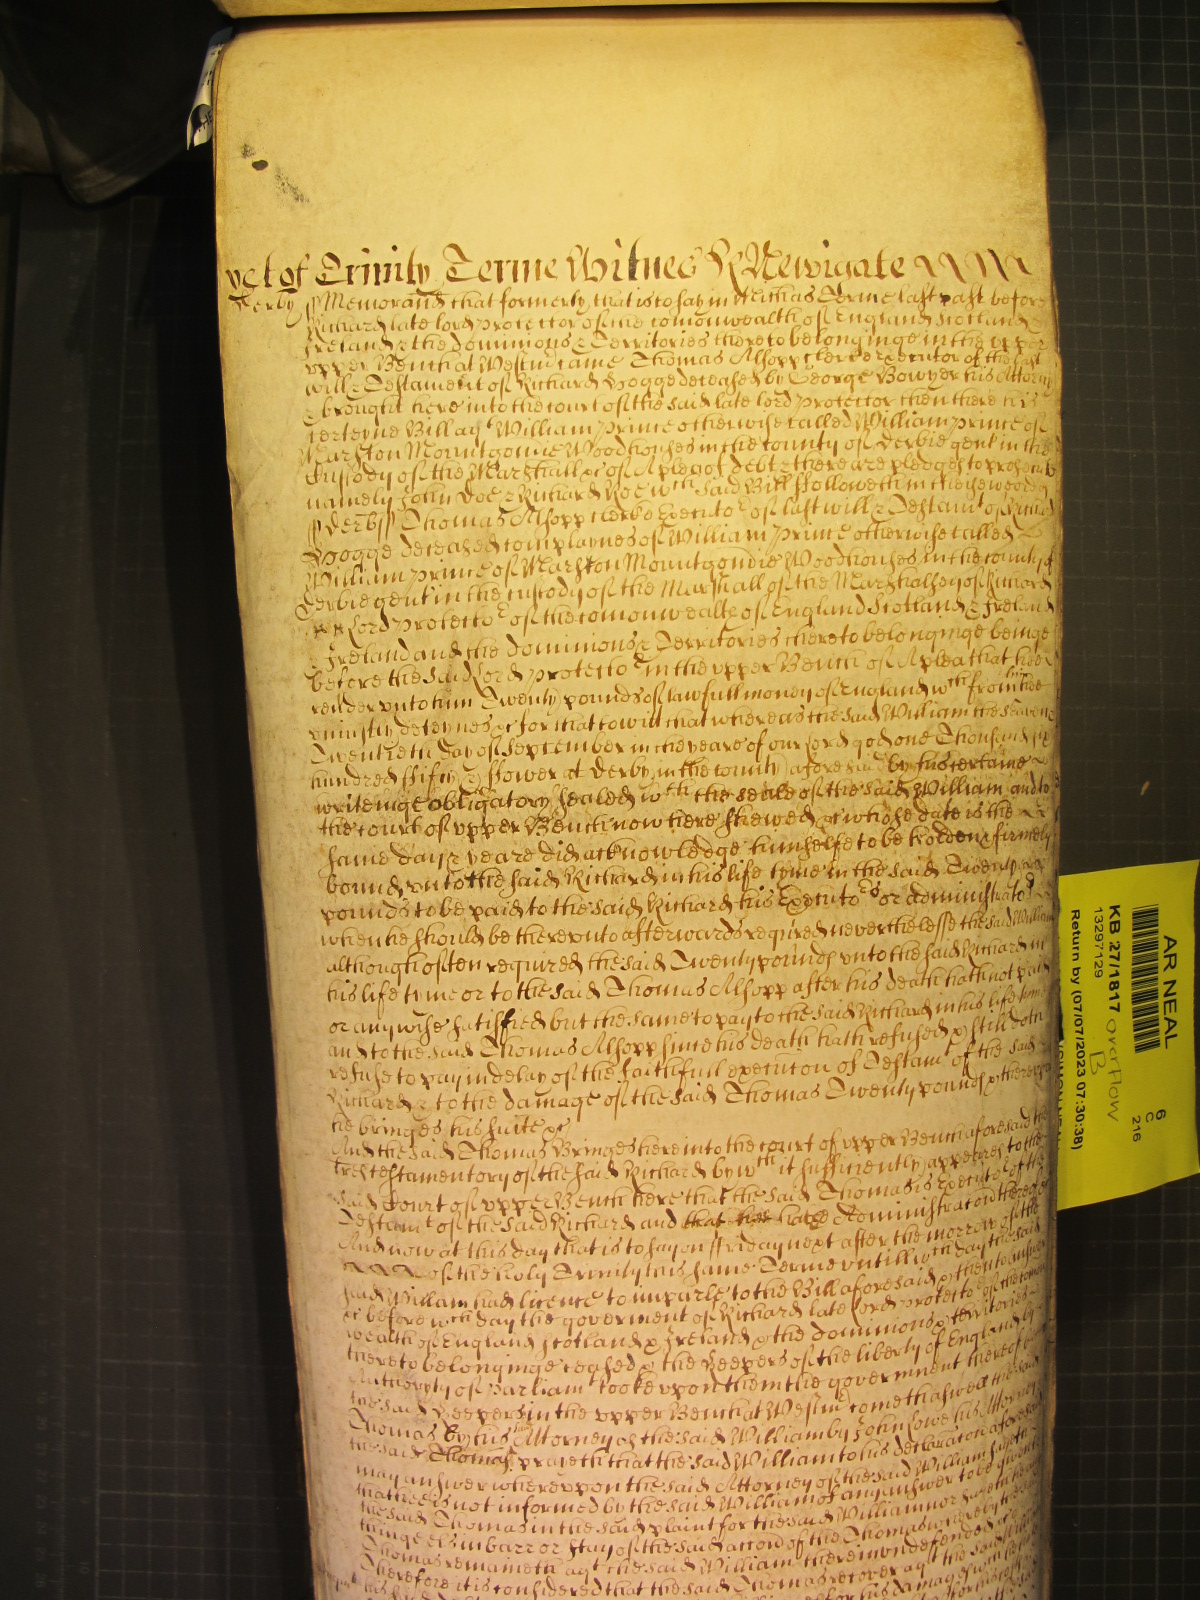 yet of Trinity Terme Witnes R Newdigate
Derby ss Memorand that formerly that is to say in Michas Terme last past before
Richard late lord protector of the comonwealth of England Scotland &
Ireland & the dominions & Territories thereto belonginge in the
upper Bench at Westm came Thomas Alsopp clerke executor of the last
will & Testament of Richard Hogge deceased by George Bowyer his Attorny
& brought here into the court of the said late lord protector then there his
certeyne Bill agt William Prince otherwise called William prince of
Marston Mountgomie Woodhouses in the county of Derbie gent in the
Custody of the Marshall &c of A plea of debt & there are pledges to prosecute
namely John Doe & Richard Roe wch said Bill ffolloweth in these words
ss Derb ss Thomas Alsopp clerke Executor of last will & Testamt of Richard
Hogge deceased complaynes of William Prince otherwise called
William prince of Marston Mountgomdie Woodhouses in the county of
Derbie gent in the custody of the Marshall of the Marshalsey of Richard
Lord Protector of the comonwealth of England Scotland & Ireland
Ireland and the dominions & Territories thereto belonginge beinge
before the said Lord Protector in the upper Bench of A plea that hee
render unto him Twenty pounds of lawfull money of England wch from him hee
uniustly deteynes &c for that to witt that whereas the said William the seaven &
Twentieth day of September in the yeare of our lord god one Thousand six
hundred ffifty & ffower at Derby in the county aforesaid by his certaine
writeinge obligatory sealed wth the seale of the said William and to
the court of upper Bench now here shewed &c whose date is the
same day & yeare did acknowledge himselfe to be holden & firmely
bound unto the said Richard in his life tyme in the said Twenty
pounds to be paid to the said Richard his Executors or administrators
when he should be thereunto afterwards required neverthelesse the said William
although often required the said Twenty pounds unto the said Richard in
his life tyme or to the said Thomas Alsopp after his death hath not paid
or any wise satisfied but the same to pay to the said Richard in his life tyme
and to the said Thomas Alsopp since his death hath refused & still doth
refuse to pay in delay of the faithfull execution of Testamt of the said
Richard & to the damage of the said Thomas Twenty pounds & thereupon
he bringes his suite &c
And the said Thomas Bringes here into the court of upper Bench aforesaid the
lres testamentory of the said Richard by wch it sufficiently appeares to the
said Court of upper Bench here that the said Thomas is Executor of the
Testamt of the said Richard and that hee hath Administracon thereof &c
And now at this day that is to say on ffriday next after the morrow of the
of the holy Trinity this same Terme untill wch day the said
said William had licence to imparle to the Bill aforesaid & then to answer
&c before wch day the goverment of Richard late lord protector of the comon
wealth of England Scotland & Ireland & the dominions & territories
thereto belonginge ceased & the Keepers of the liberty of England by
Authoryty of Parliamt tooke upon them the government thereof
the said Keepers in the upper Bench at Westm cometh aswell the said
Thomas by his said Attorney as the said William by John Lowe his Attorney
the said Thomas prayeth that the said William to his declaracon aforesaid
may answer whereupon the said Attorney of the said William sayeth
that hee is not informed by the said William of any answer to be given to
the said Thomas in the said plaint for the said William nor
thinge els in barr or stay of the said accon of the Thomas whereby the said
Thomas remaineth agt the said William therein undefended
Therefore it is considered that the said Thomas recover agt the said William
AR NEAL
KB 27/1817 overflow
B
13297129
6
C
216
Return by (07/07/2023 07:30:38)